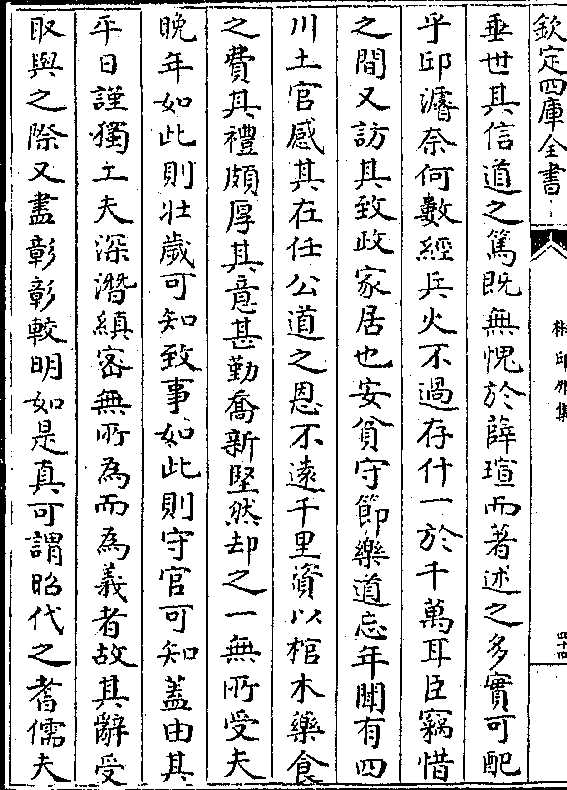 欽定四庫全書
椒邱外集
四十四
垂世其信道之篤既無愧於薛瑄而著述之多實可配
乎邱濬奈何數經兵火不過存什一於千萬耳臣竊惜
之間又訪其致政家居也安貧守節樂道忘年聞有四
川土官感其在任公道之恩不遠千里資以棺木藥食
之費其禮頗厚其意甚勤喬新堅然却之一無所受夫
晚年如此則壯歲可知致事如此則守官可知蓋由其
平日謹獨工夫深潛縝密無所為而為義者故其辭受
取與之際又盡彰彰較明如是真可謂昭代之耆儒夫